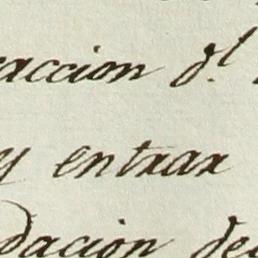 accion d.l
y entrar
dacion de